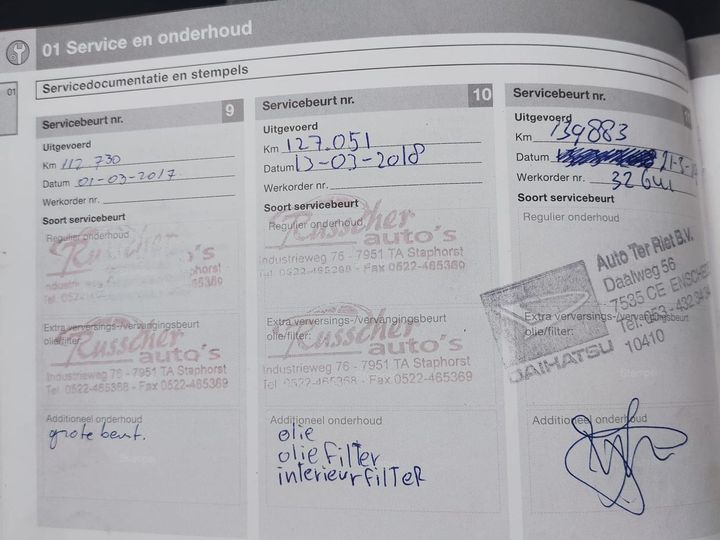 01 Service en onderhoud
01
Servicedocumentatie en stempels
Servicebeurt nr. 9
Uitgevoerd
Km 112 730
Datum 01-03-2017
Werkorder nr.
Soort servicebeurt
Regulier onderhoud
Russcher
auto's
Extra verversings-/vervangingsbeurt
olie/filter:
Russcher
auto's
Industrieweg 76 - 7951 TA Staphorst
Tel. 0522-465368 - Fax 0522-465369
Additioneel onderhoud
grote beurt.
Servicebeurt nr. 10
Uitgevoerd
Km 127.051
Datum 13-03-2018
Werkorder nr.
Soort servicebeurt
Regulier onderhoud
Russcher
auto's
Industrieweg 76 - 7951 TA Staphorst
Tel. 0522-465368 - Fax 0522-465369
Extra verversings-/vervangingsbeurt
olie/filter:
Russcher
auto's
Industrieweg 76 - 7951 TA Staphorst
Tel. 0522-465368 - Fax 0522-465369
Additioneel onderhoud
olie
olie filter
interieurfilter
Servicebeurt nr.
Uitgevoerd
Km 139883
Datum
Werkorder nr.
Soort servicebeurt
Regulier onderhoud
Auto Ter Riet B.V.
Daalweg 56
7535 CE ENSCHEDE
DAIHATSU
10410
Extra verversings-/vervangingsbeurt
olie/filter:
Stempel
Additioneel onderhoud